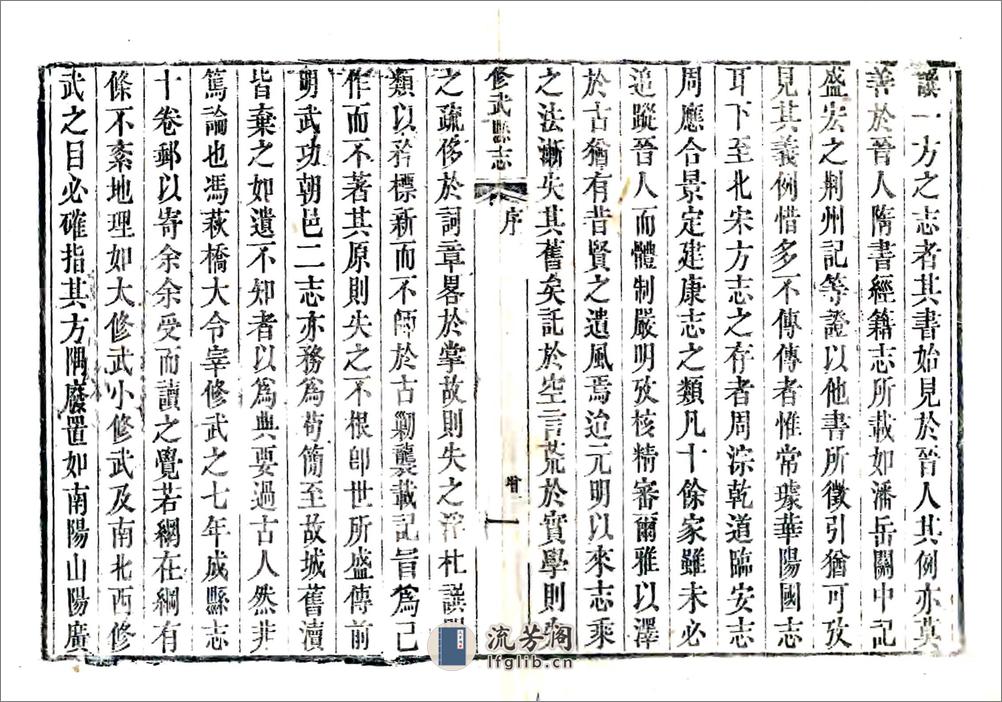 譔一方之志者其書始見於晉人其例亦莫
善於晉人隋書經籍志所載如潘岳關中記
盛宏之荆州記等證以他書所徵引猶可攷
見其義例惜多不傳傳者惟常璩華陽國志
耳下至北宋方志之存者周淙乾道臨安志
周應合景定建康志之類凡十餘家雖未必
追蹤晉人而體制嚴明攷核精審爾雅以澤
於古猶有昔賢之遺風焉迨元明以來志乘
之法漸失其舊矣託於空言荒於實學則失
修武縣志
序
增
一
之疏侈於詞章畧於掌故則失之浮杜譔門
類以矜標新而不師於古勦襲載記旨爲己
作而不著其原則失之不根卽世所盛傳前
明武功朝邑二志亦務爲苟簡至故城舊瀆
皆棄之如遺不知者以爲典要過古人然非
篤論也馮萩橋大令宰修武之七年成縣志
十卷郵以寄余余受而讀之覺若網在綱有
條不紊地理如大修武小修武及南北西修
武之目必確指其方隅廢置如南陽山陽廣
流芳阁
lfglib.cn